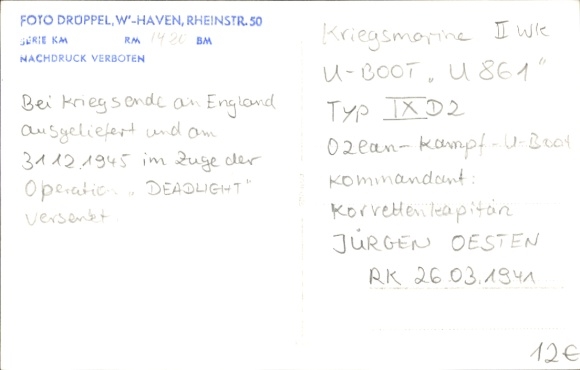 FOTO DRÜPPEL, W'-HAVEN, RHEINSTR. 50
SERIE KM RM 1420 BM
NACHDRUCK VERBOTEN
Bei Kriegsende an England
ausgeliefert und am
31.12.1945 im Zuge der
Operation „DEADLIGHT"
versenkt.
Kriegsmarine II WK
U-BOOT „U 861"
TYP IX D2
Ozean-Kampf-U-Boot
Kommandant:
Korvettenkapitän
JÜRGEN OESTEN
RK 26.03.1941
12€